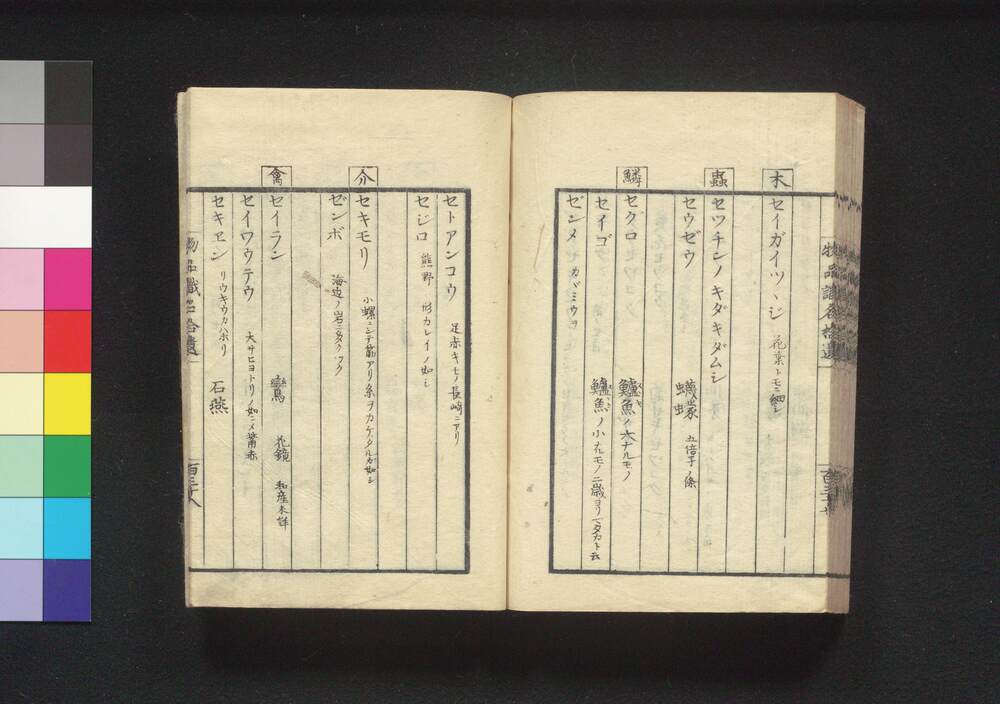 木
セイガイツヽジ 花葉トモニ細シ
蟲
セツチンノキダキダムシ
セウゼウ 蠛蠓 五倍子ノ條
鱗
セクロ 鱸魚ノ大ナルモノ
セイゴ 鱸魚ノ小ナルモノ二歳ヨリマタカト云
ゼンメ カヾミウヲ
セトアンコウ 足赤キモノ長崎ニアリ
セジロ 熊野 形カレイノ如シ
介
セキモリ 小螺ニシテ筋アリ糸ヲカケタルガ如シ
ゼンボ 海辺ノ岩ニ多クツク
禽
セイラン 鸞 花鏡 和産未詳
セイワウテウ 大サヒヨトリノ如ニメ觜赤
セキエン リウキウカハホリ 石燕
物品識名拾遺
百三十八